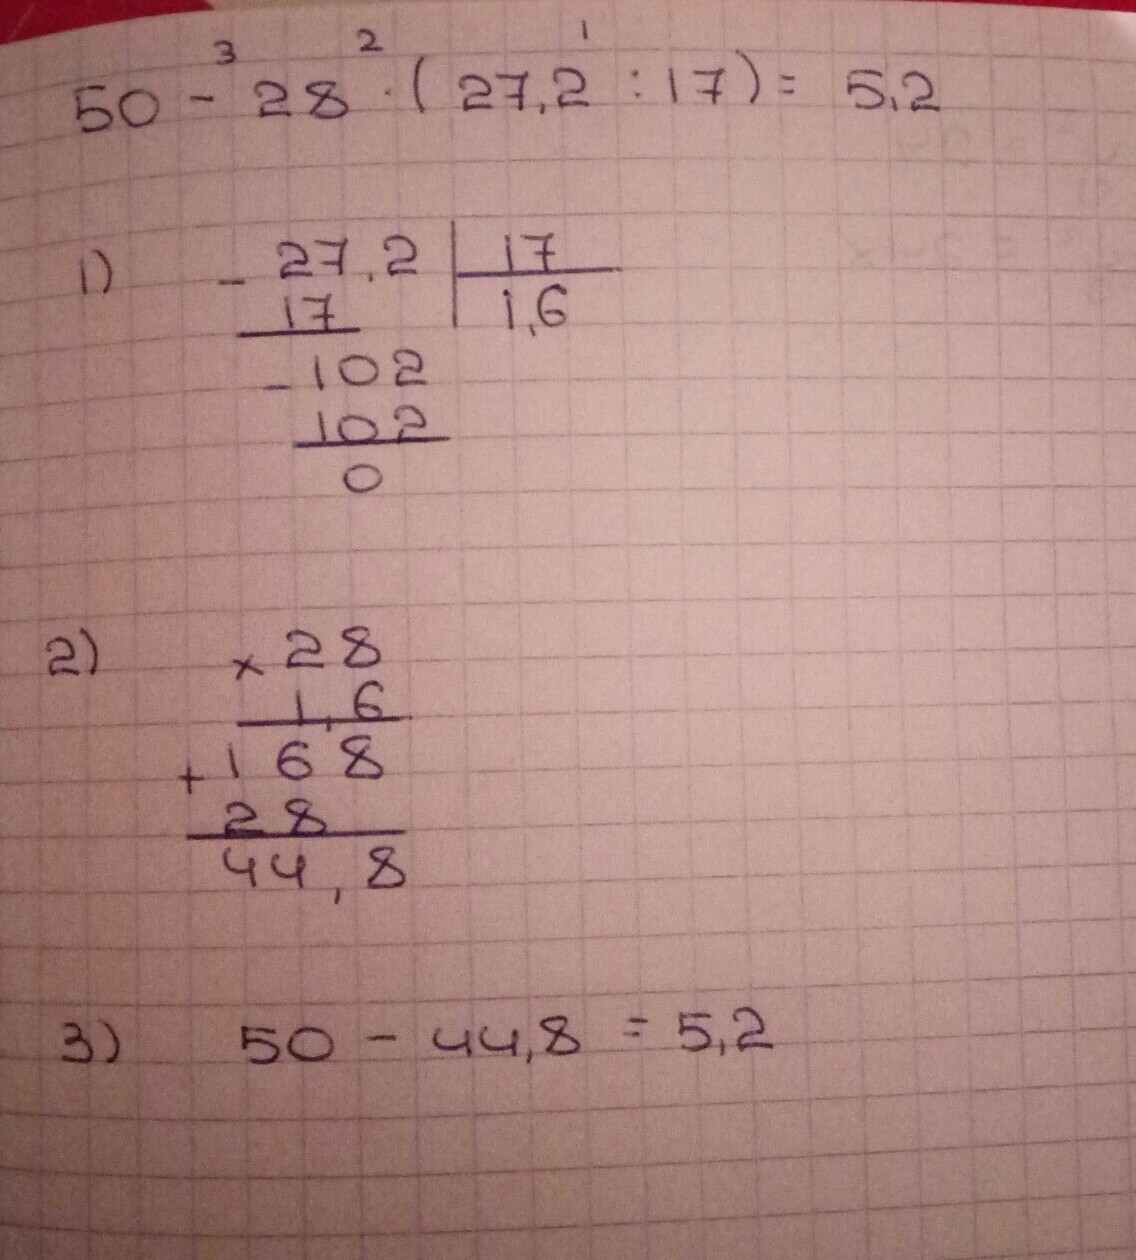 3 2 1
50 - 28 · ( 27,2 : 17 ) = 5,2
1) - 27,2 | 17
17 1,6
- 102
102
0
2) × 28
1,6
+ 168
28
44,8
3) 50 - 44,8 = 5,2